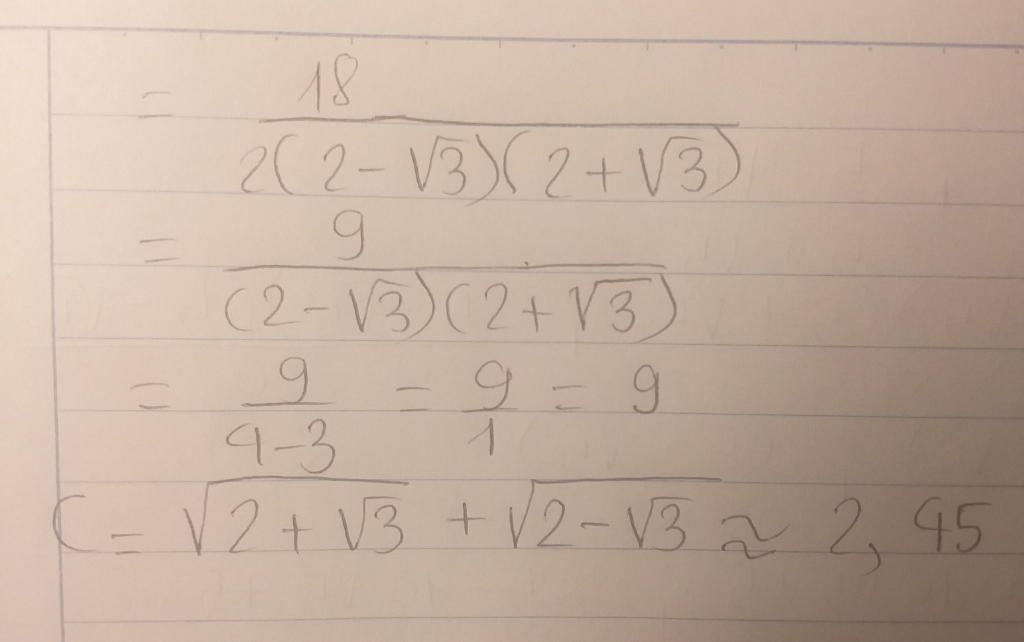 = 18 / 2(2-√3)(2+√3)
= 9 / (2-√3)(2+√3)
= 9 / 4-3 = 9/1 = 9
C = √(2+√3) + √(2-√3) ≈ 2,45